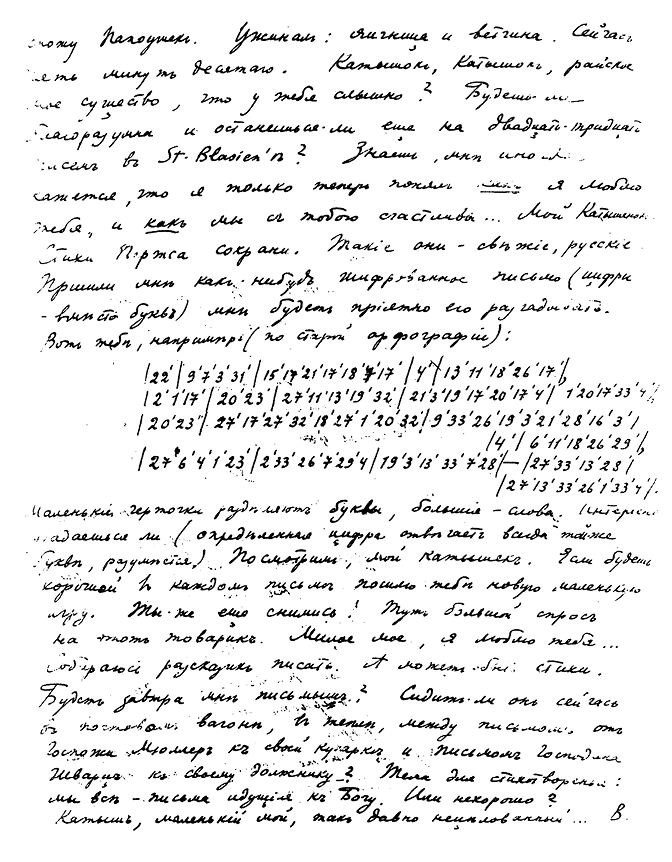 Ужинал: яичница и ветчина. Сейчасъ
минутъ десятаго. Катышокъ, Катышокъ, райское
мое существо, что у тебя слышно? Будешь-ли
благоразумна и останешься-ли еще на двадцать-тридцать
въ St. Blasien'ѣ? Знаешь, мнѣ иногда
кажется, что я только теперь понялъ я люблю
тебя, и какъ мы съ тобою счастливы... Мой Катышенокъ
Стихи сохрани. Такіе они - свѣжіе, русскіе
Пришли мнѣ какъ-нибудь шифрованное письмо (цифры
- вмѣсто буквъ) мнѣ будетъ пріятно его разгадывать.
Вотъ тебѣ, напримѣръ (по старой орфографіи):
|22'| 9'7'3'31'| 15'17'21'17'18'7'17'| 4'| 13'11'18'26'17'|,
|2'1'17'| 20'23'| 27'11'13'19'32'| 21'3'19'17'20'17'4'| 1'20'17'33'4'|,
|20'23'| 27'17'27'32'18'27'1'20'32'| 9'33'26'19'3'21'28'16'3'|
|4'| 6'11'18'26'29'|,
|27'6'4'1'23'| 2'33'26'7'29'4'| 19'3'13'33'7'28'|—|27'33'13'28'|
|27'13'33'26'1'33'4'|.
Маленькія черточки раздѣляютъ буквы, большія - слова. Интересно
ли (опредѣленная цифра отвѣчаетъ всегда той-же
буквѣ, разумѣется.) Посмотримъ, мой катышекъ. Если будешь
хорошей въ каждомъ письмѣ пошлю тебѣ новую маленькую
игру. Ты-же ешо снимись! Тутъ большой спросъ
на этотъ товарикъ. Милое мое, я люблю тебя...
Собираюсь разсказикъ писать. А можетъ-быть стихи.
Будетъ завтра мнѣ письмышъ? Сидитъ-ли онъ сейчасъ
въ почтовомъ вагонѣ, въ теплѣ, между письмомъ отъ
Госпожи Мюллеръ къ своей кухаркѣ и письмомъ Господина
Шварцъ къ своему должнику? Тема для стихотворенья:
мы всѣ - письма идущія къ Богу. Или нехорошо?
Катышъ, маленькій мой, такъ давно нецѣлованный... В.